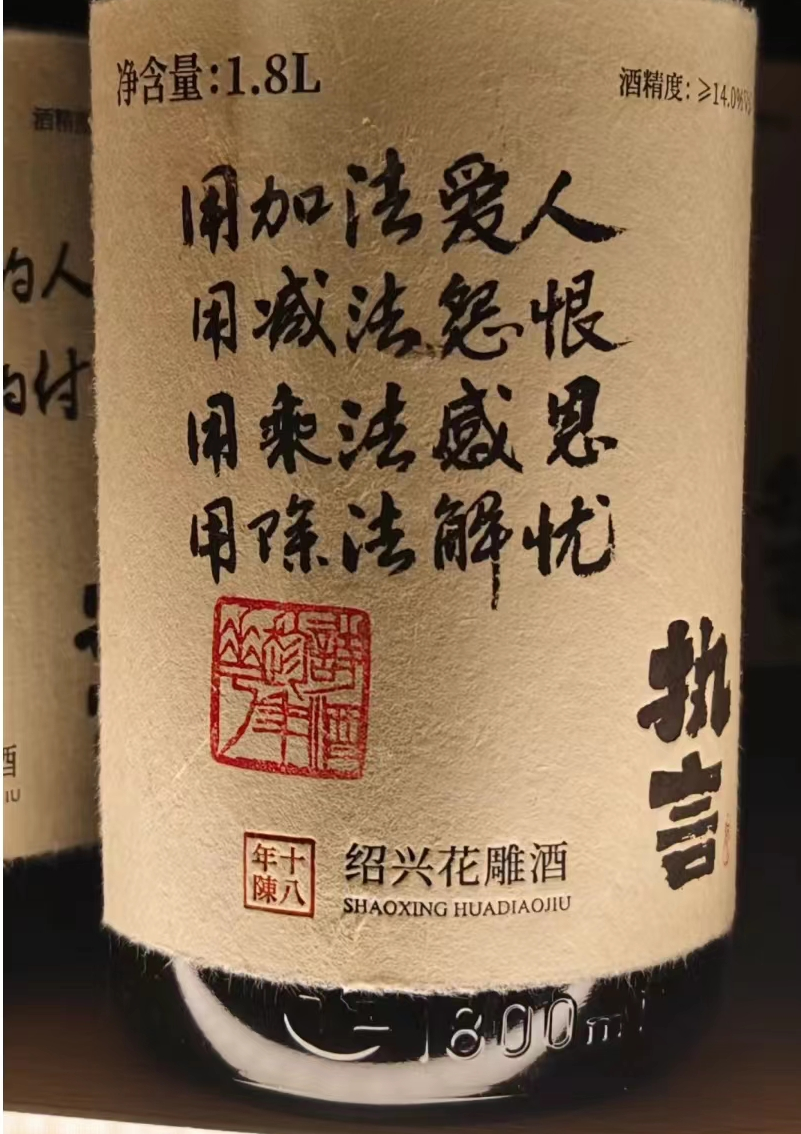 净含量:1.8L
酒精度:≥14.0%VO
用加法爱人
用减法怨恨
用乘法感恩
用除法解忧
执言
十八年陳
绍兴花雕酒
SHAOXING HUADIAOJIU
1800ml
酒精度
的人
的付
酒
IU